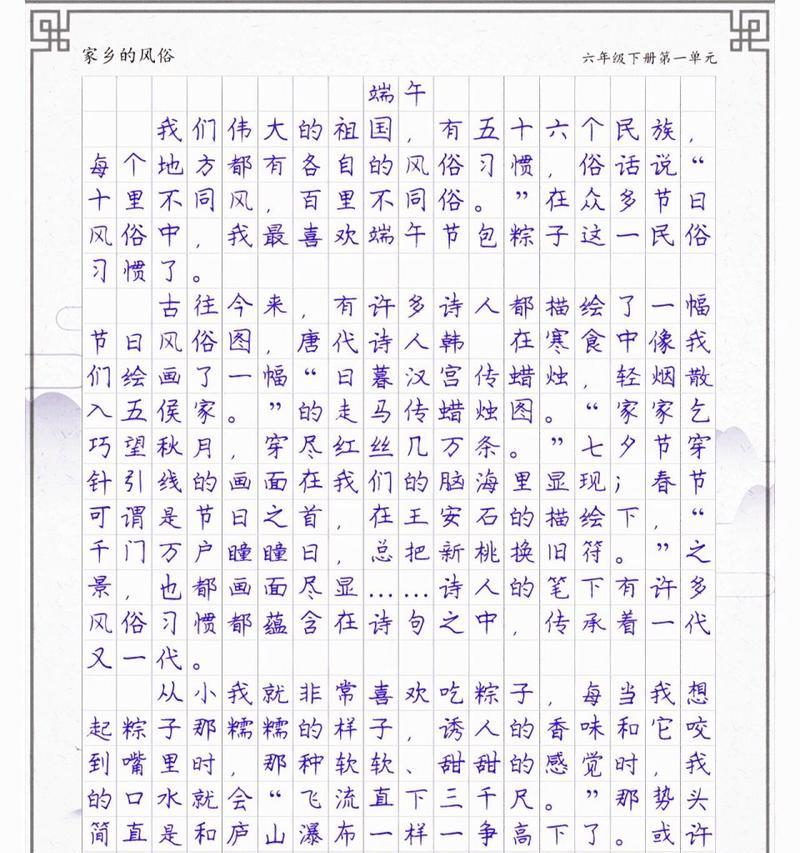 家乡的风俗
六年级下册第一单元
端午
我们伟大的祖国，有五十六个民族，
每个地方都有各自的风俗习惯，俗话说“
十里不同风，百里不同俗。”在众多节日
风俗中，我最喜欢端午节包粽子这一民俗
习惯了。
古往今来，有许多诗人都描绘了一幅
节日风俗图，唐代诗人韩 在寒食中像我
们绘画了一幅“日暮汉宫传蜡烛，轻烟散
入五侯家。”的走马传蜡烛图。“家家乞
巧望秋月，穿尽红丝几万条。”七夕节穿
针引线的画面在我们的脑海里显现；春节
可谓是节日之首，在王安石的描绘下，“
千门万户瞳瞳日，总把新桃换旧符。”之
景，也都画面尽显……诗人的笔下有许多
风俗习惯都蕴含在诗句之中，传承着一代
又一代。
从小我就非常喜欢吃粽子，每当我想
起粽子那糯糯的样子，诱人的香味和它咬
到嘴里时，那种软软、甜甜的感觉时，我
的口水就会“飞流直下三千尺。”那势头
简直是和庐山瀑布一样一争高下了。或许